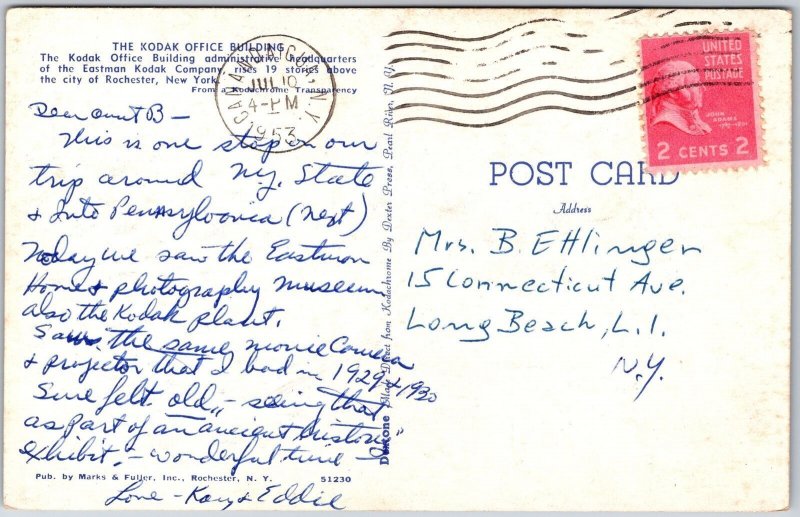 THE KODAK OFFICE BUILDING
The Kodak Office Building administrative headquarters
of the Eastman Kodak Company, rises 19 stories above
the city of Rochester, New York.
From a Kodachrome Transparency
CANANDAIGUA, N.Y.
JUL 10
4-PM
1953
UNITED
STATES
POSTAGE
JOHN
ADAMS
2 CENTS 2
Dear Aunt B —
This is one stop on our
trip around N.Y. State
& into Pennsylvania (next)
Today we saw the Eastman
Home & photography museum
also the Kodak plant.
Saw the same movie Camera
& projector that I had in 1929 & 1930
Sure felt old, - seeing that
as part of an "ancient historic"
exhibit, - wonderful time -
Love - Kay & Eddie
Pub. by Marks & Fuller, Inc., Rochester, N. Y. 51230
Made Direct from Kodachrome By Dexter Press, Pearl River, N. Y.
POST CARD
Address
Mrs. B. Ettlinger
15 Connecticut Ave.
Long Beach, L.I.
N.Y.